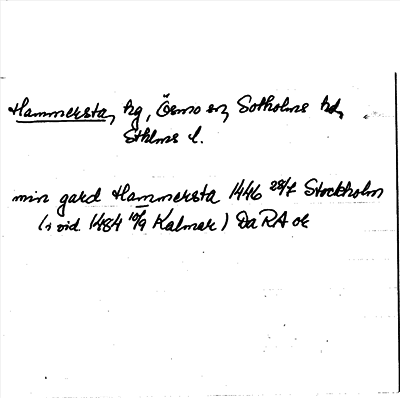 Hammersta, hg, Ösmo sn, Sotholms hd,
Sthlms l.
min gard Hammersta 1446 28/7 Stockholm
(i vid. 1484 10/9 Kalmar) Da RA or